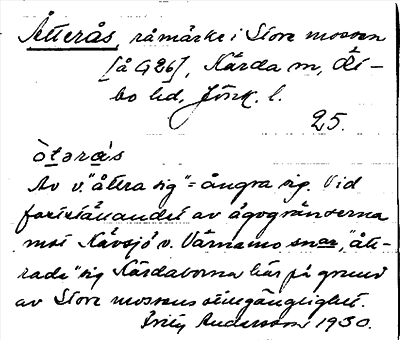 Åtterås, råmärke i Store mossen
[å G26], Kärda sn, Öst-
bo hd, Jönk. l.
25.
òtəràs
Av v. "åttra sig" = ångra sig. Vid
fastställandet av ägogränserna
mot Kävsjö o. Värnamo snar, "ått-
rade" sig Kärdaborna här på grund
av Store mossens otillgänglighet.
Fritz Andersson 1930.